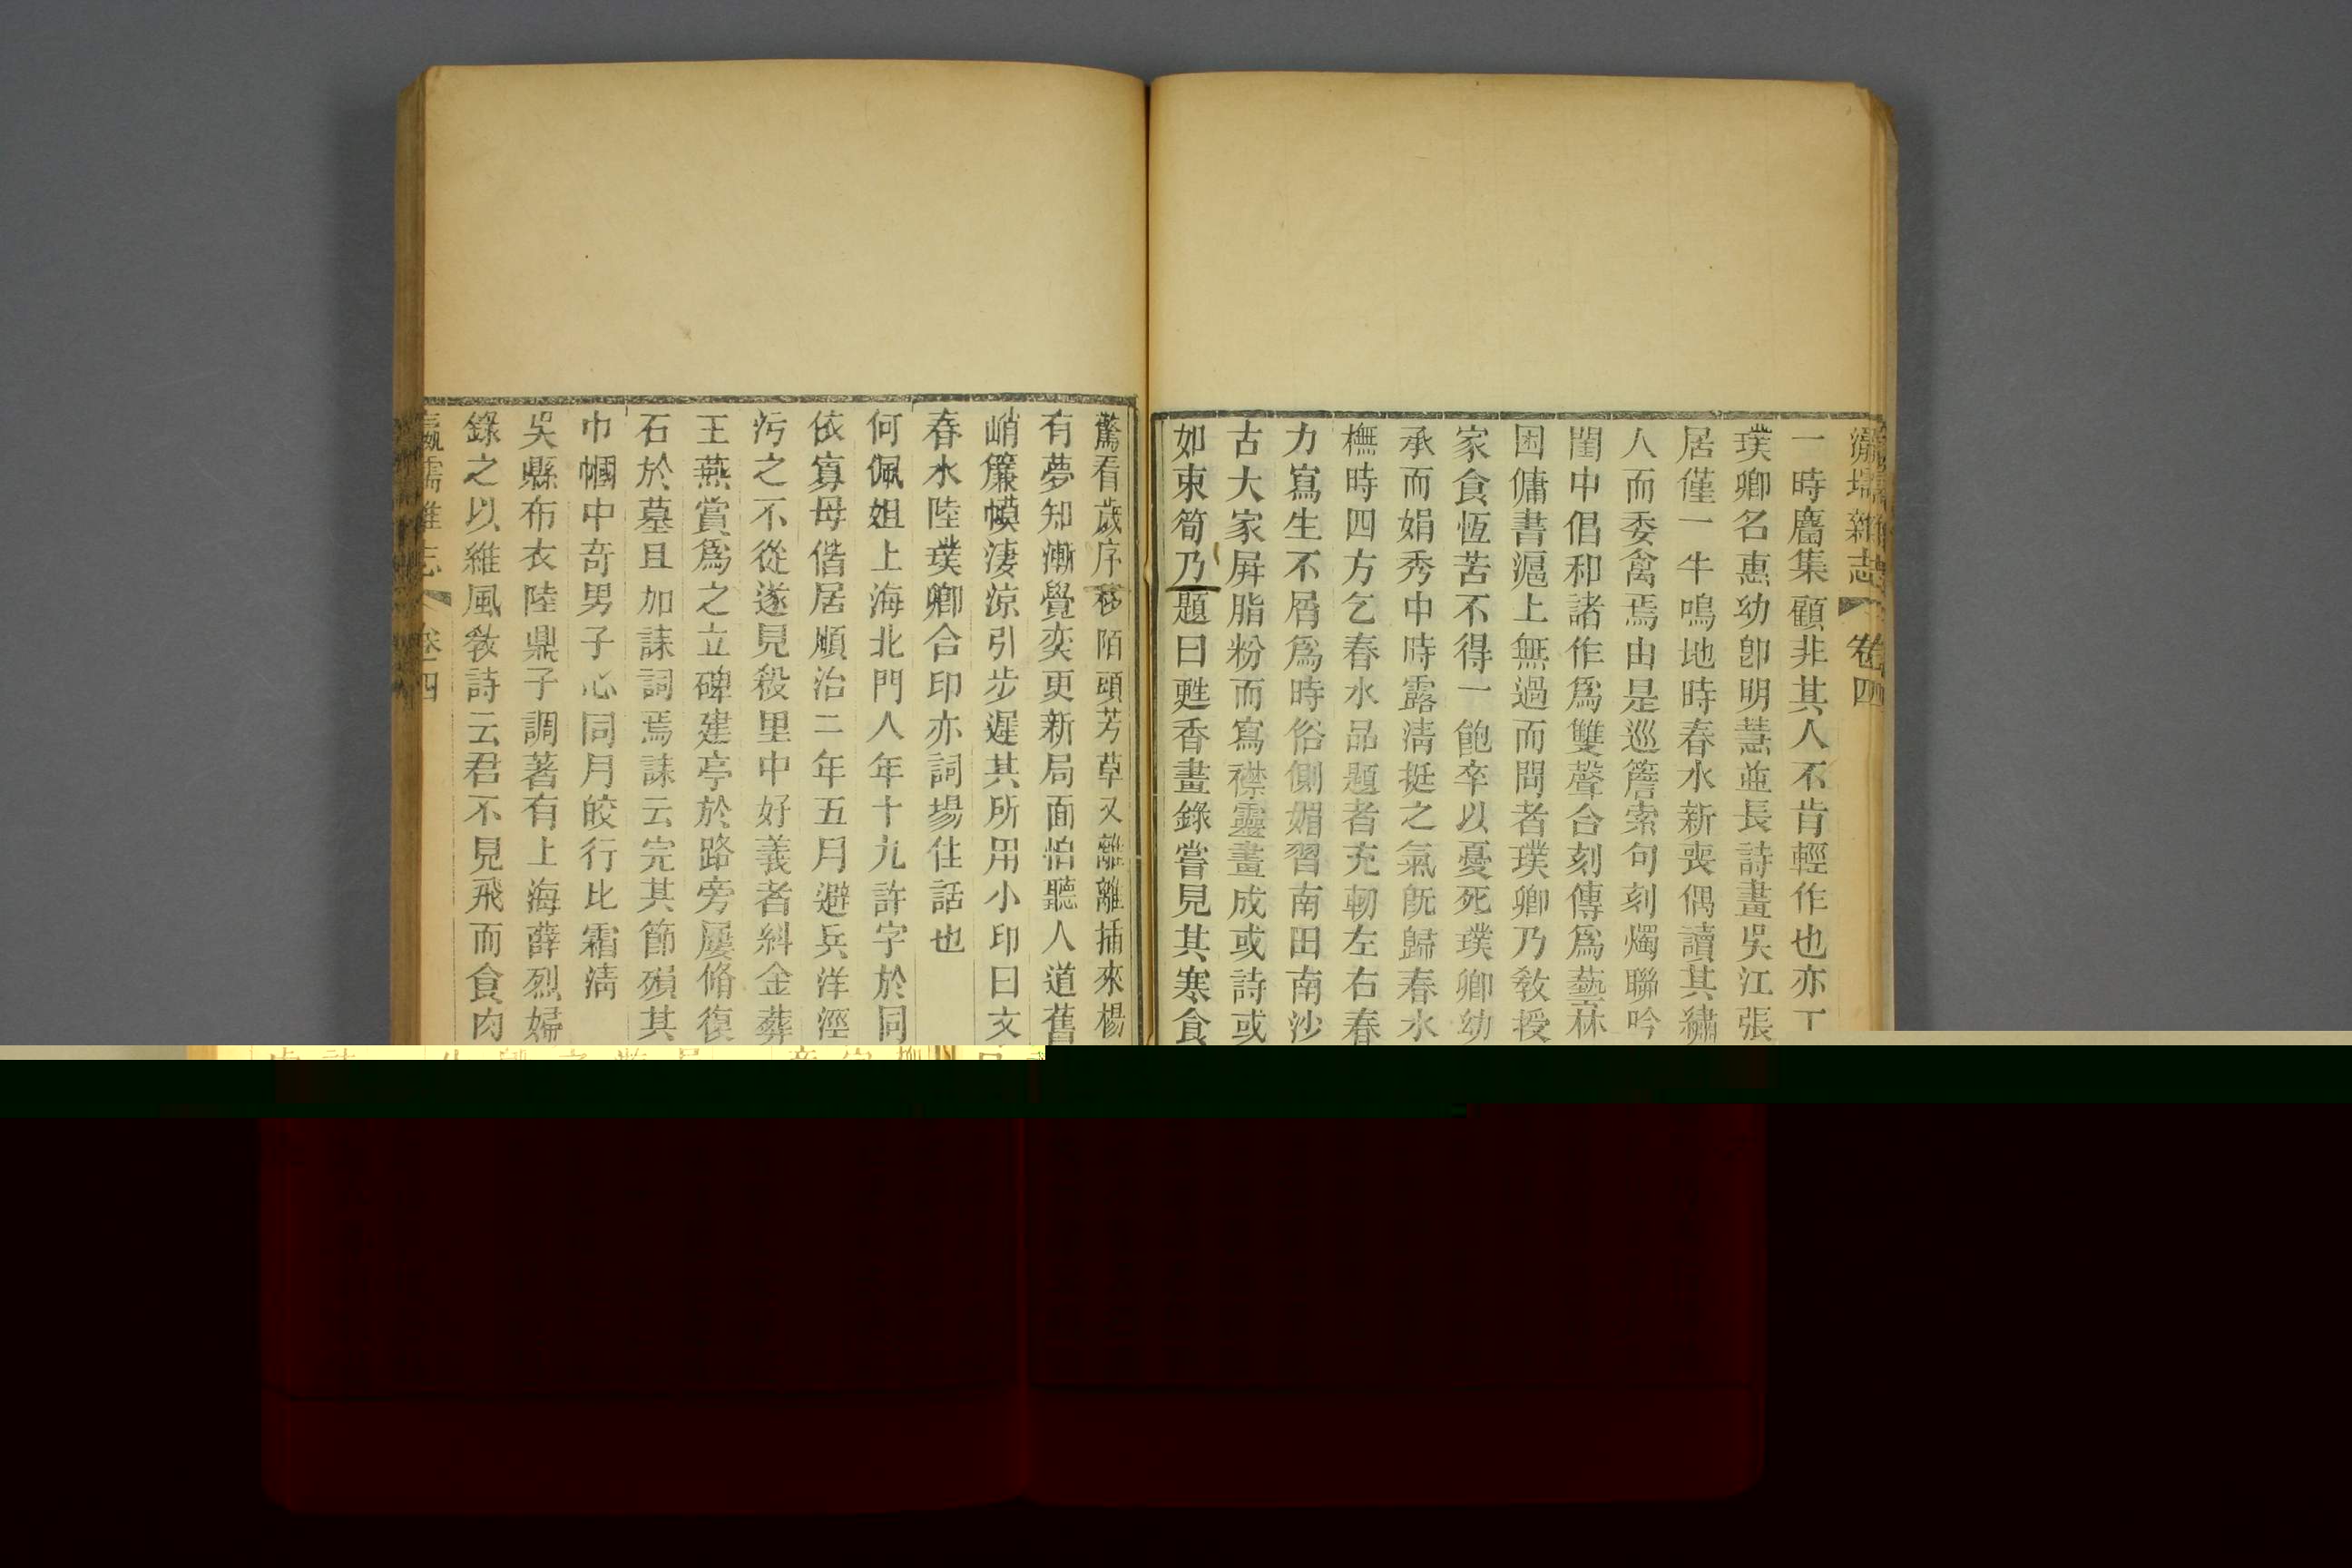 瀛壖雜志 卷四
一時廣集顧非其人不肯輕作也亦工
璞卿名惠幼卽明慧並長詩畫吳江張
居僅一牛鳴地時春水新喪偶讀其繡
人而委禽焉由是巡簷索句刻燭聯吟
閨中倡和諸作爲雙聲合刻傳爲藝林
困傭書滬上無過而問者璞卿乃敎授
家食恆苦不得一飽卒以憂死璞卿幼
承而娟秀中時露淸挺之氣旣歸春水
橅時四方乞春水品題者充軔左右春
力寫生不屑爲時俗側媚習南田南沙
古大家屛脂粉而寫襟靈畫成或詩或
如束筍乃題曰甦香畫錄嘗見其寒食
驚看歲序移陌頭芳草又離離插來楊
有夢知漸覺奕更新局面怕聽人道舊
峭簾幙淒涼引步遲其所用小印曰文
春水陸璞卿合印亦詞場佳話也
何佩姐上海北門人年十九許字於同
依寡母偕居順治二年五月避兵洋涇
污之不從遂見殺里中好義者糾金葬
王燕賞爲之立碑建亭於路旁屢脩復
石於墓且加誄詞焉誄云完其節殞其
巾幗中奇男子心同月皎行比霜淸
吳縣布衣陸鼎子調著有上海薛烈婦
錄之以維風敎詩云君不見飛而食肉
瀛壖雜志 卷四